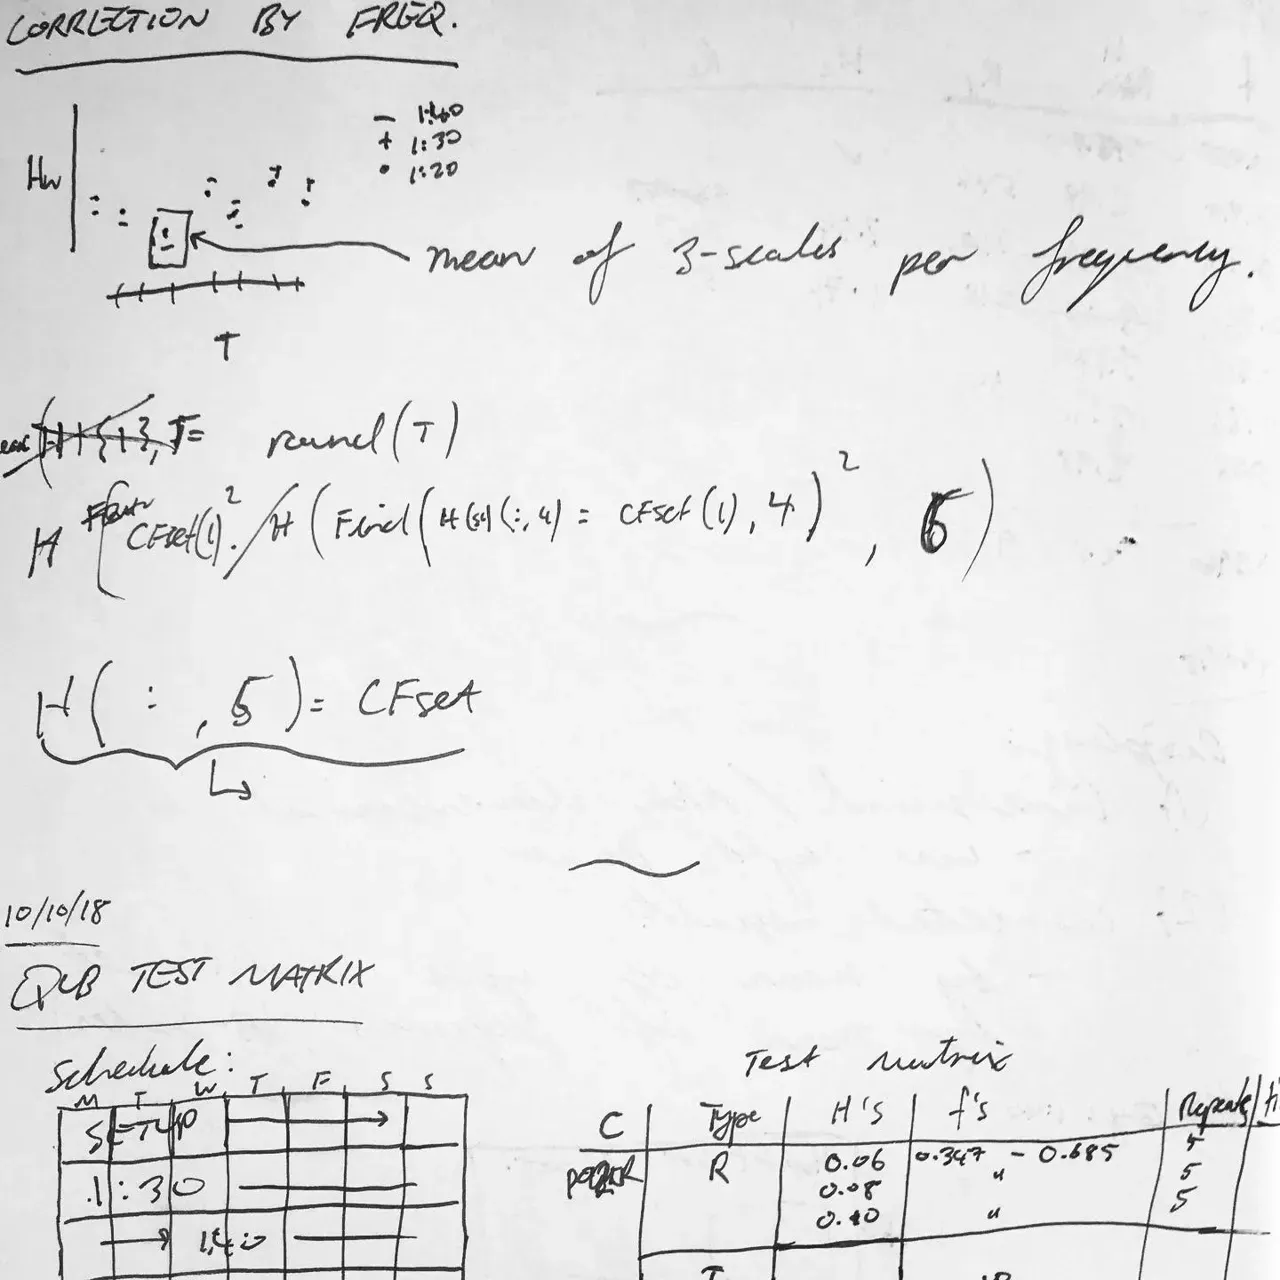 CORRECTION BY FREQ.
- 1:40
+ 1:30
• 1:20
Hw
mean of 3-scales per frequency.
T
round(T)
H CFset(1)² ./ H (Find(H{s4}(:,4) = CFset(1),4)², 5)
H( : , 5) = CFset
10/10/18
QUB TEST MATRIX
Schedule:
M T W T F S S
SETUP
1:30
1:40
Test matrix
C Type H's f's Repeats
R 0.06 0.347 - 0.685
0.08 " 5
0.10 " 5